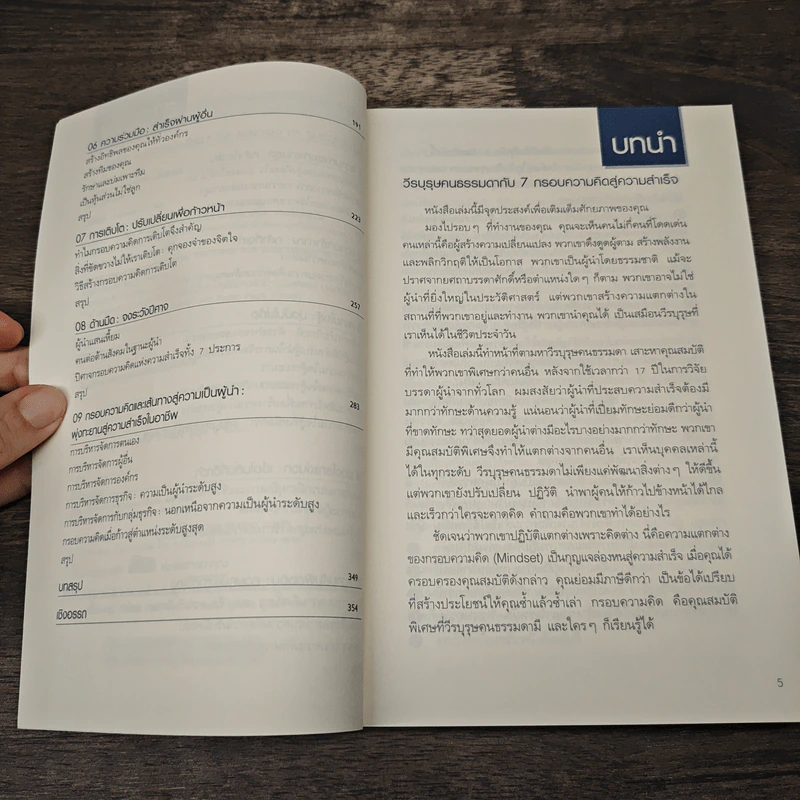 06 ความร่วมมือ : สำเร็จผ่านผู้อื่น 191
สร้างอิทธิพลของคุณให้ทั่วองค์กร
สร้างทีมของคุณ
รักษาและบ่มเพาะทีม
เป็นหุ้นส่วนไม่ใช่ลูก
สรุป
07 การเติบโต : ปรับเปลี่ยนเพื่อก้าวหน้า 223
ทำไมกรอบความคิดการเติบโตจึงสำคัญ
สิ่งที่ขัดขวางไม่ให้เราเติบโต : คุกจองจำของจิตใจ
วิธีสร้างกรอบความคิดการเติบโต
สรุป
08 ด้านมืด : จงระวังปีศาจ 257
ผู้นำแสนเหี้ยม
คนต่อต้านสังคมในฐานะผู้นำ
ปีศาจกรอบความคิดแห่งความสำเร็จทั้ง 7 ประการ
สรุป
09 กรอบความคิดและเส้นทางสู่ความเป็นผู้นำ :
พุ่งทะยานสู่ความสำเร็จในอาชีพ 283
การบริหารจัดการตนเอง
การบริหารจัดการผู้อื่น
การบริหารจัดการองค์กร
การบริหารจัดการธุรกิจ : ความเป็นผู้นำระดับสูง
การบริหารจัดการกับกลุ่มธุรกิจ : นอกเหนือจากความเป็นผู้นำระดับสูง
กรอบความคิดเมื่อก้าวสู่ตำแหน่งระดับสูงสุด
สรุป
บทสรุป 349
เชิงอรรถ 354
บทนำ
วีรบุรุษคนธรรมดากับ 7 กรอบความคิดสู่ความสำเร็จ
หนังสือเล่มนี้มีจุดประสงค์เพื่อเติมเต็มศักยภาพของคุณ
มองไปรอบๆ ที่ทำงานของคุณ คุณจะเห็นคนไม่กี่คนที่โดดเด่น
คนเหล่านี้คือผู้สร้างความเปลี่ยนแปลง พวกเขาดึงดูดผู้ตาม สร้างพลังงาน
และพลิกวิกฤติให้เป็นโอกาส พวกเขาเป็นผู้นำโดยธรรมชาติ แม้จะ
ปราศจากยศถาบรรดาศักดิ์หรือตำแหน่งใดๆ ก็ตาม พวกเขาอาจไม่ใช่
ผู้นำที่ยิ่งใหญ่ในประวัติศาสตร์ แต่พวกเขาสร้างความแตกต่างใน
สถานที่ที่พวกเขาอยู่และทำงาน พวกเขานำคุณได้ เป็นเสมือนวีรบุรุษที่
เราเห็นได้ในชีวิตประจำวัน
หนังสือเล่มนี้ทำหน้าที่ตามหาวีรบุรุษคนธรรมดา เสาะหาคุณสมบัติ
ที่ทำให้พวกเขาพิเศษกว่าคนอื่น หลังจากใช้เวลากว่า 17 ปีในการวิจัย
บรรดาผู้นำจากทั่วโลก ผมสงสัยว่าผู้นำที่ประสบความสำเร็จต้องมี
มากกว่าทักษะด้านความรู้ แน่นอนว่าผู้นำที่เปี่ยมทักษะย่อมดีกว่าผู้นำ
ที่ขาดทักษะ ทว่าสุดยอดผู้นำต่างมีอะไรบางอย่างมากกว่าทักษะ พวกเขา
มีคุณสมบัติพิเศษจึงทำให้แตกต่างจากคนอื่น เราเห็นบุคคลเหล่านี้
ได้ในทุกระดับ วีรบุรุษคนธรรมดาไม่เพียงแค่พัฒนาสิ่งต่างๆ ให้ดีขึ้น
แต่พวกเขายังปรับเปลี่ยน ปฏิวัติ นำพาผู้คนให้ก้าวไปข้างหน้าได้ไกล
และเร็วกว่าใครจะคาดคิด คำถามคือพวกเขาทำได้อย่างไร
ชัดเจนว่าพวกเขาปฏิบัติแตกต่างเพราะคิดต่าง นี่คือความแตกต่าง
ของกรอบความคิด (Mindset) เป็นกุญแจล่องหนสู่ความสำเร็จ เมื่อคุณได้
ครอบครองคุณสมบัติดังกล่าว คุณย่อมมีภาษีดีกว่า เป็นข้อได้เปรียบ
ที่สร้างประโยชน์ให้คุณซ้ำแล้วซ้ำเล่า กรอบความคิด คือคุณสมบัติ
พิเศษที่วีรบุรุษคนธรรมดามี และใครๆ ก็เรียนรู้ได้
5